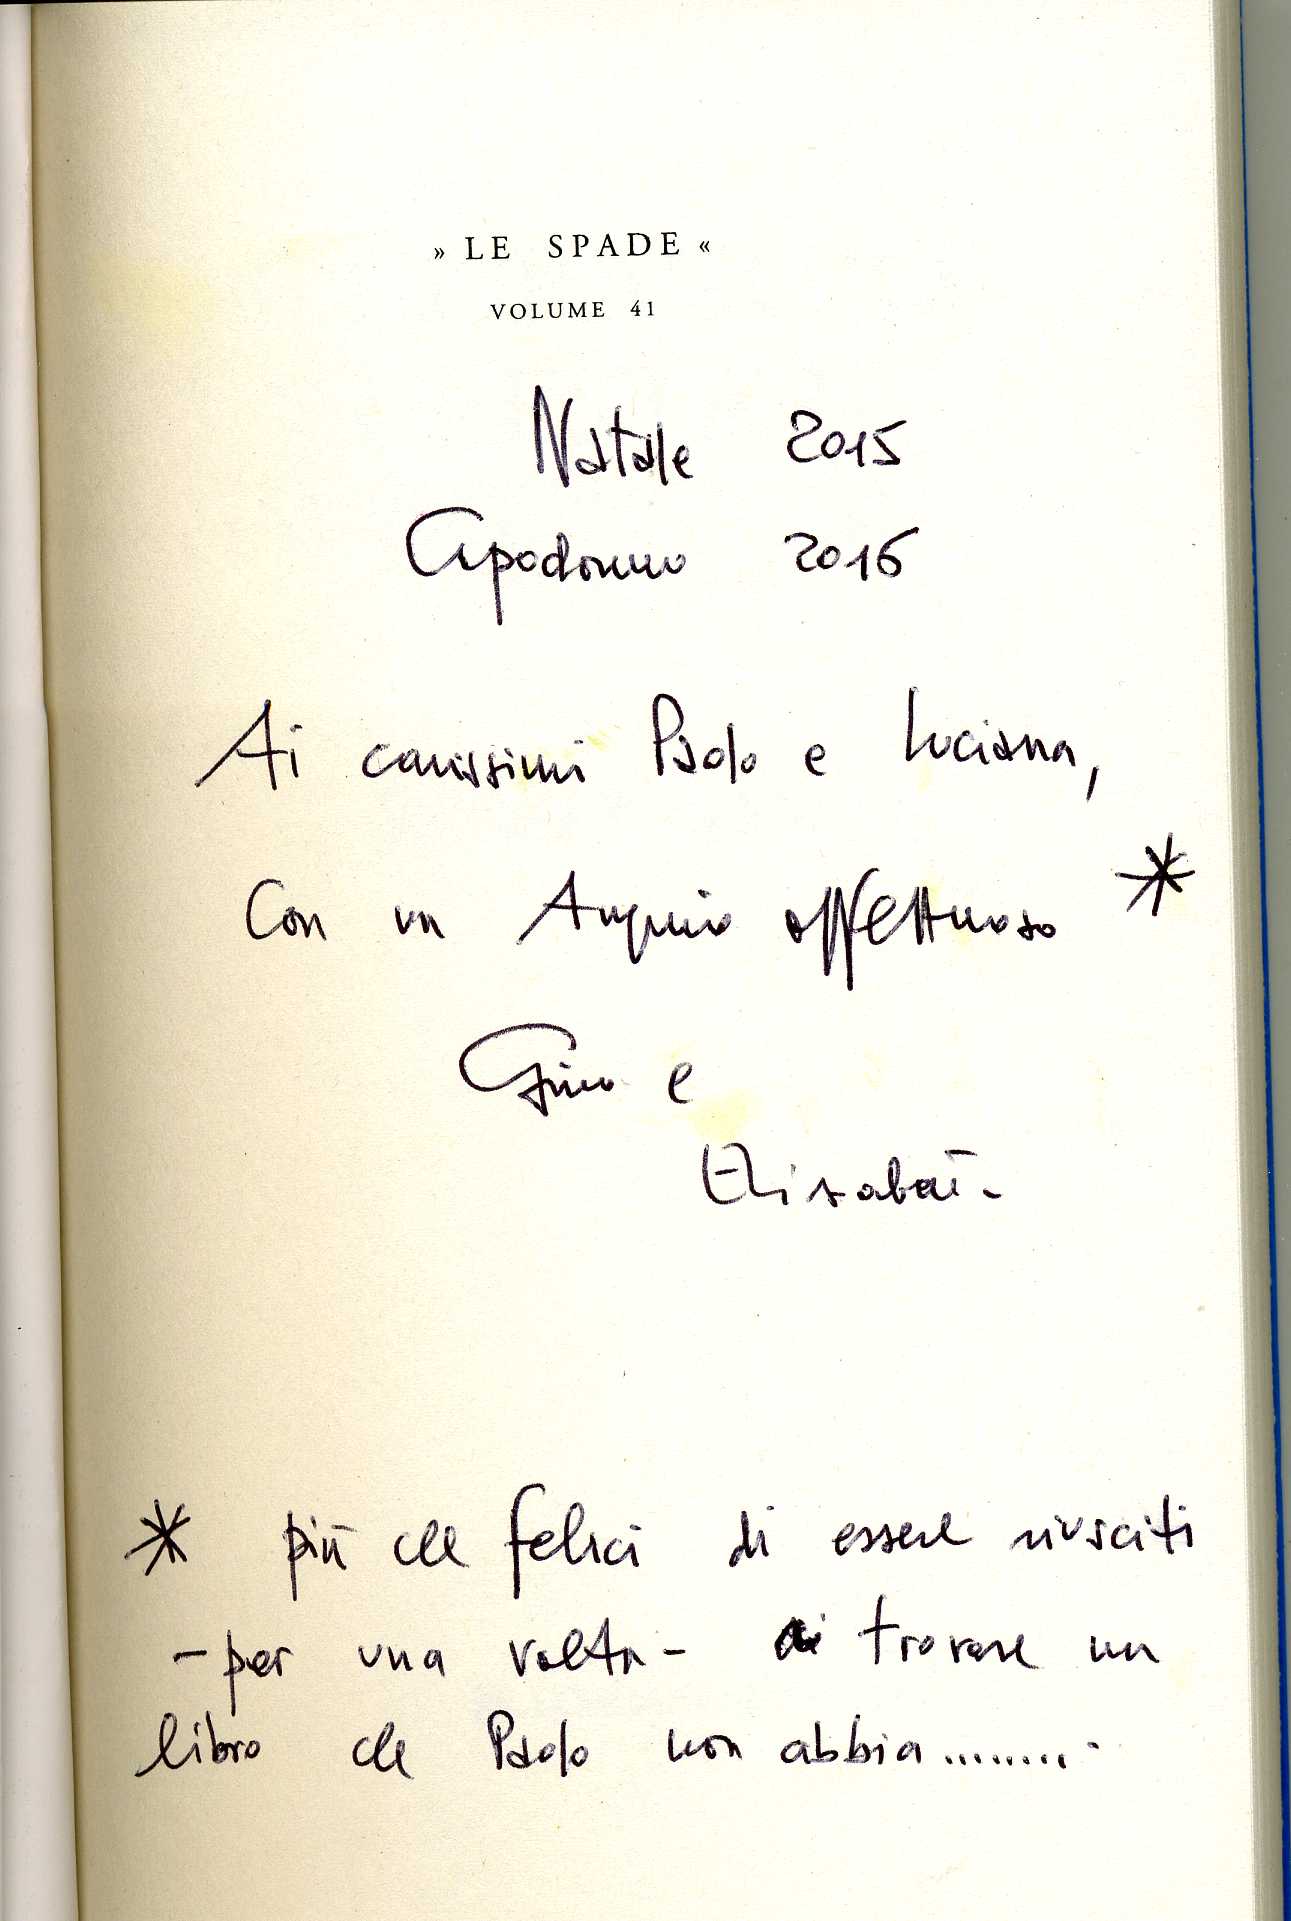 » LE SPADE «
VOLUME 41
Natale 2015
Capodanno 2016
Ai carissimi Paolo e Luciana,
Con un Augurio affettuoso *
Gino e
Elisabet.
* più che felici di essere riusciti
- per una volta - a trovare un
libro che Paolo non abbia.........